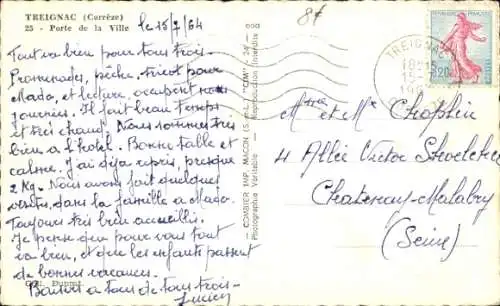 TREIGNAC (Corrèze)
25 - Porte de la Ville
le 15/7/64
8f
Tout va bien pour tous trois.
Promenades, pêche, tricot pour
Mado, et lecture, occupent nos
journées. Il fait beau temps
et très chaud. Nous sommes très
bien à l'hôtel. Bonne table et
calme. J'ai déjà repris, presque
2 Kg. Nous avons fait quelques
visites, dans la famille à Mado.
Toujours très bien accueillis.
Je pense que pour vous tout
va bien, et que les enfants passent
de bonnes vacances.
Baisers à tous de tous trois-
Lucien
COMBIER IMP. MACON (S.-et-L.) "CIM"
Photographie Véritable - Reproduction Interdite
REPUBLIQUE FRANÇAISE
0,20
TREIGNAC
18H15
15-7
Mme et Mr Choplin
4 Allée Victor
Chatenay-Malabry
(Seine)